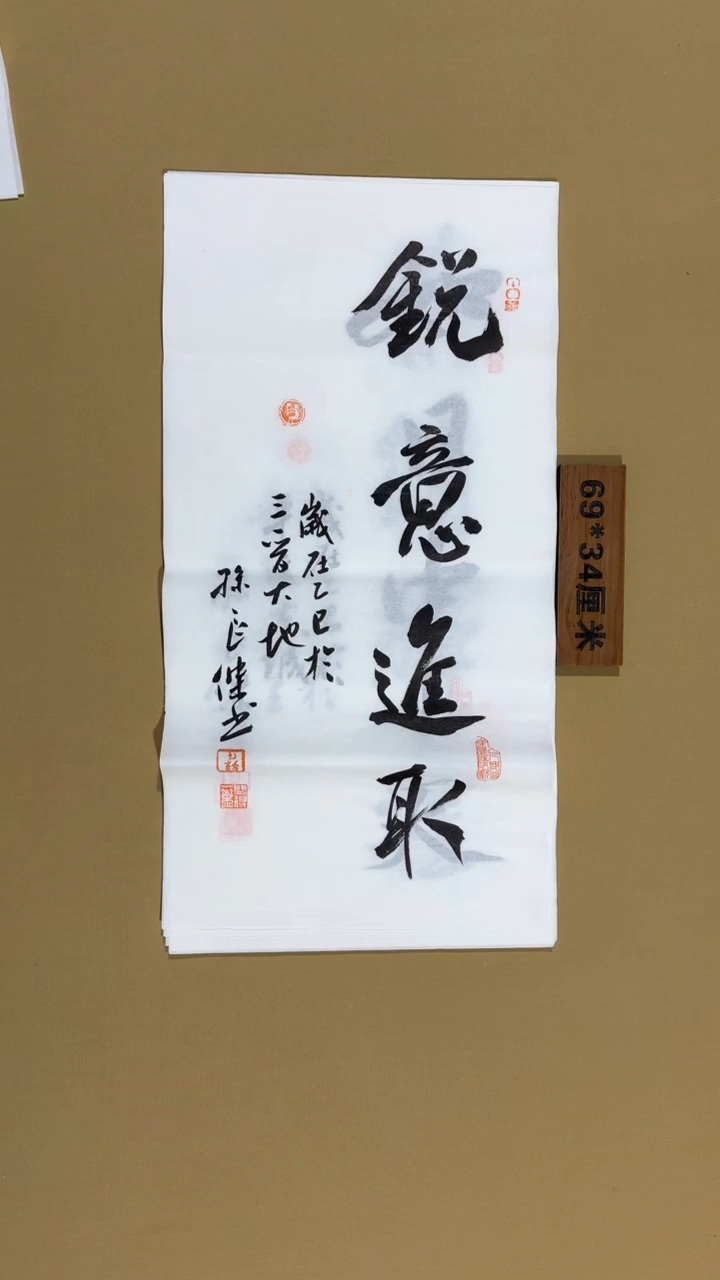 銳意進取
歲在乙巳於
三晉大地
孫良傑书
69*34厘米